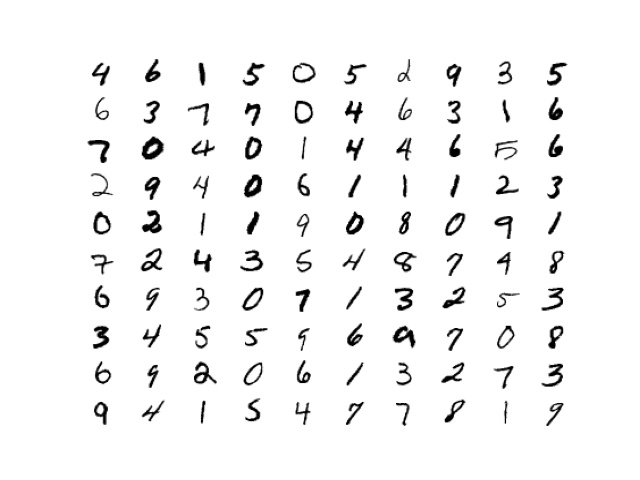 4 6 1 5 0 5 2 9 3 5
6 3 7 7 0 4 6 3 1 6
7 0 4 0 1 4 4 6 5 6
2 9 4 0 6 1 1 1 2 3
0 2 1 1 9 0 8 0 9 1
7 2 4 3 5 4 8 7 4 8
6 9 3 0 7 1 3 2 5 3
3 4 5 5 9 6 9 7 0 8
6 9 2 0 6 1 3 2 7 3
9 4 1 5 4 7 7 8 1 9